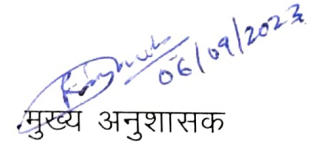 06/09/2023
मुख्य अनुशासक